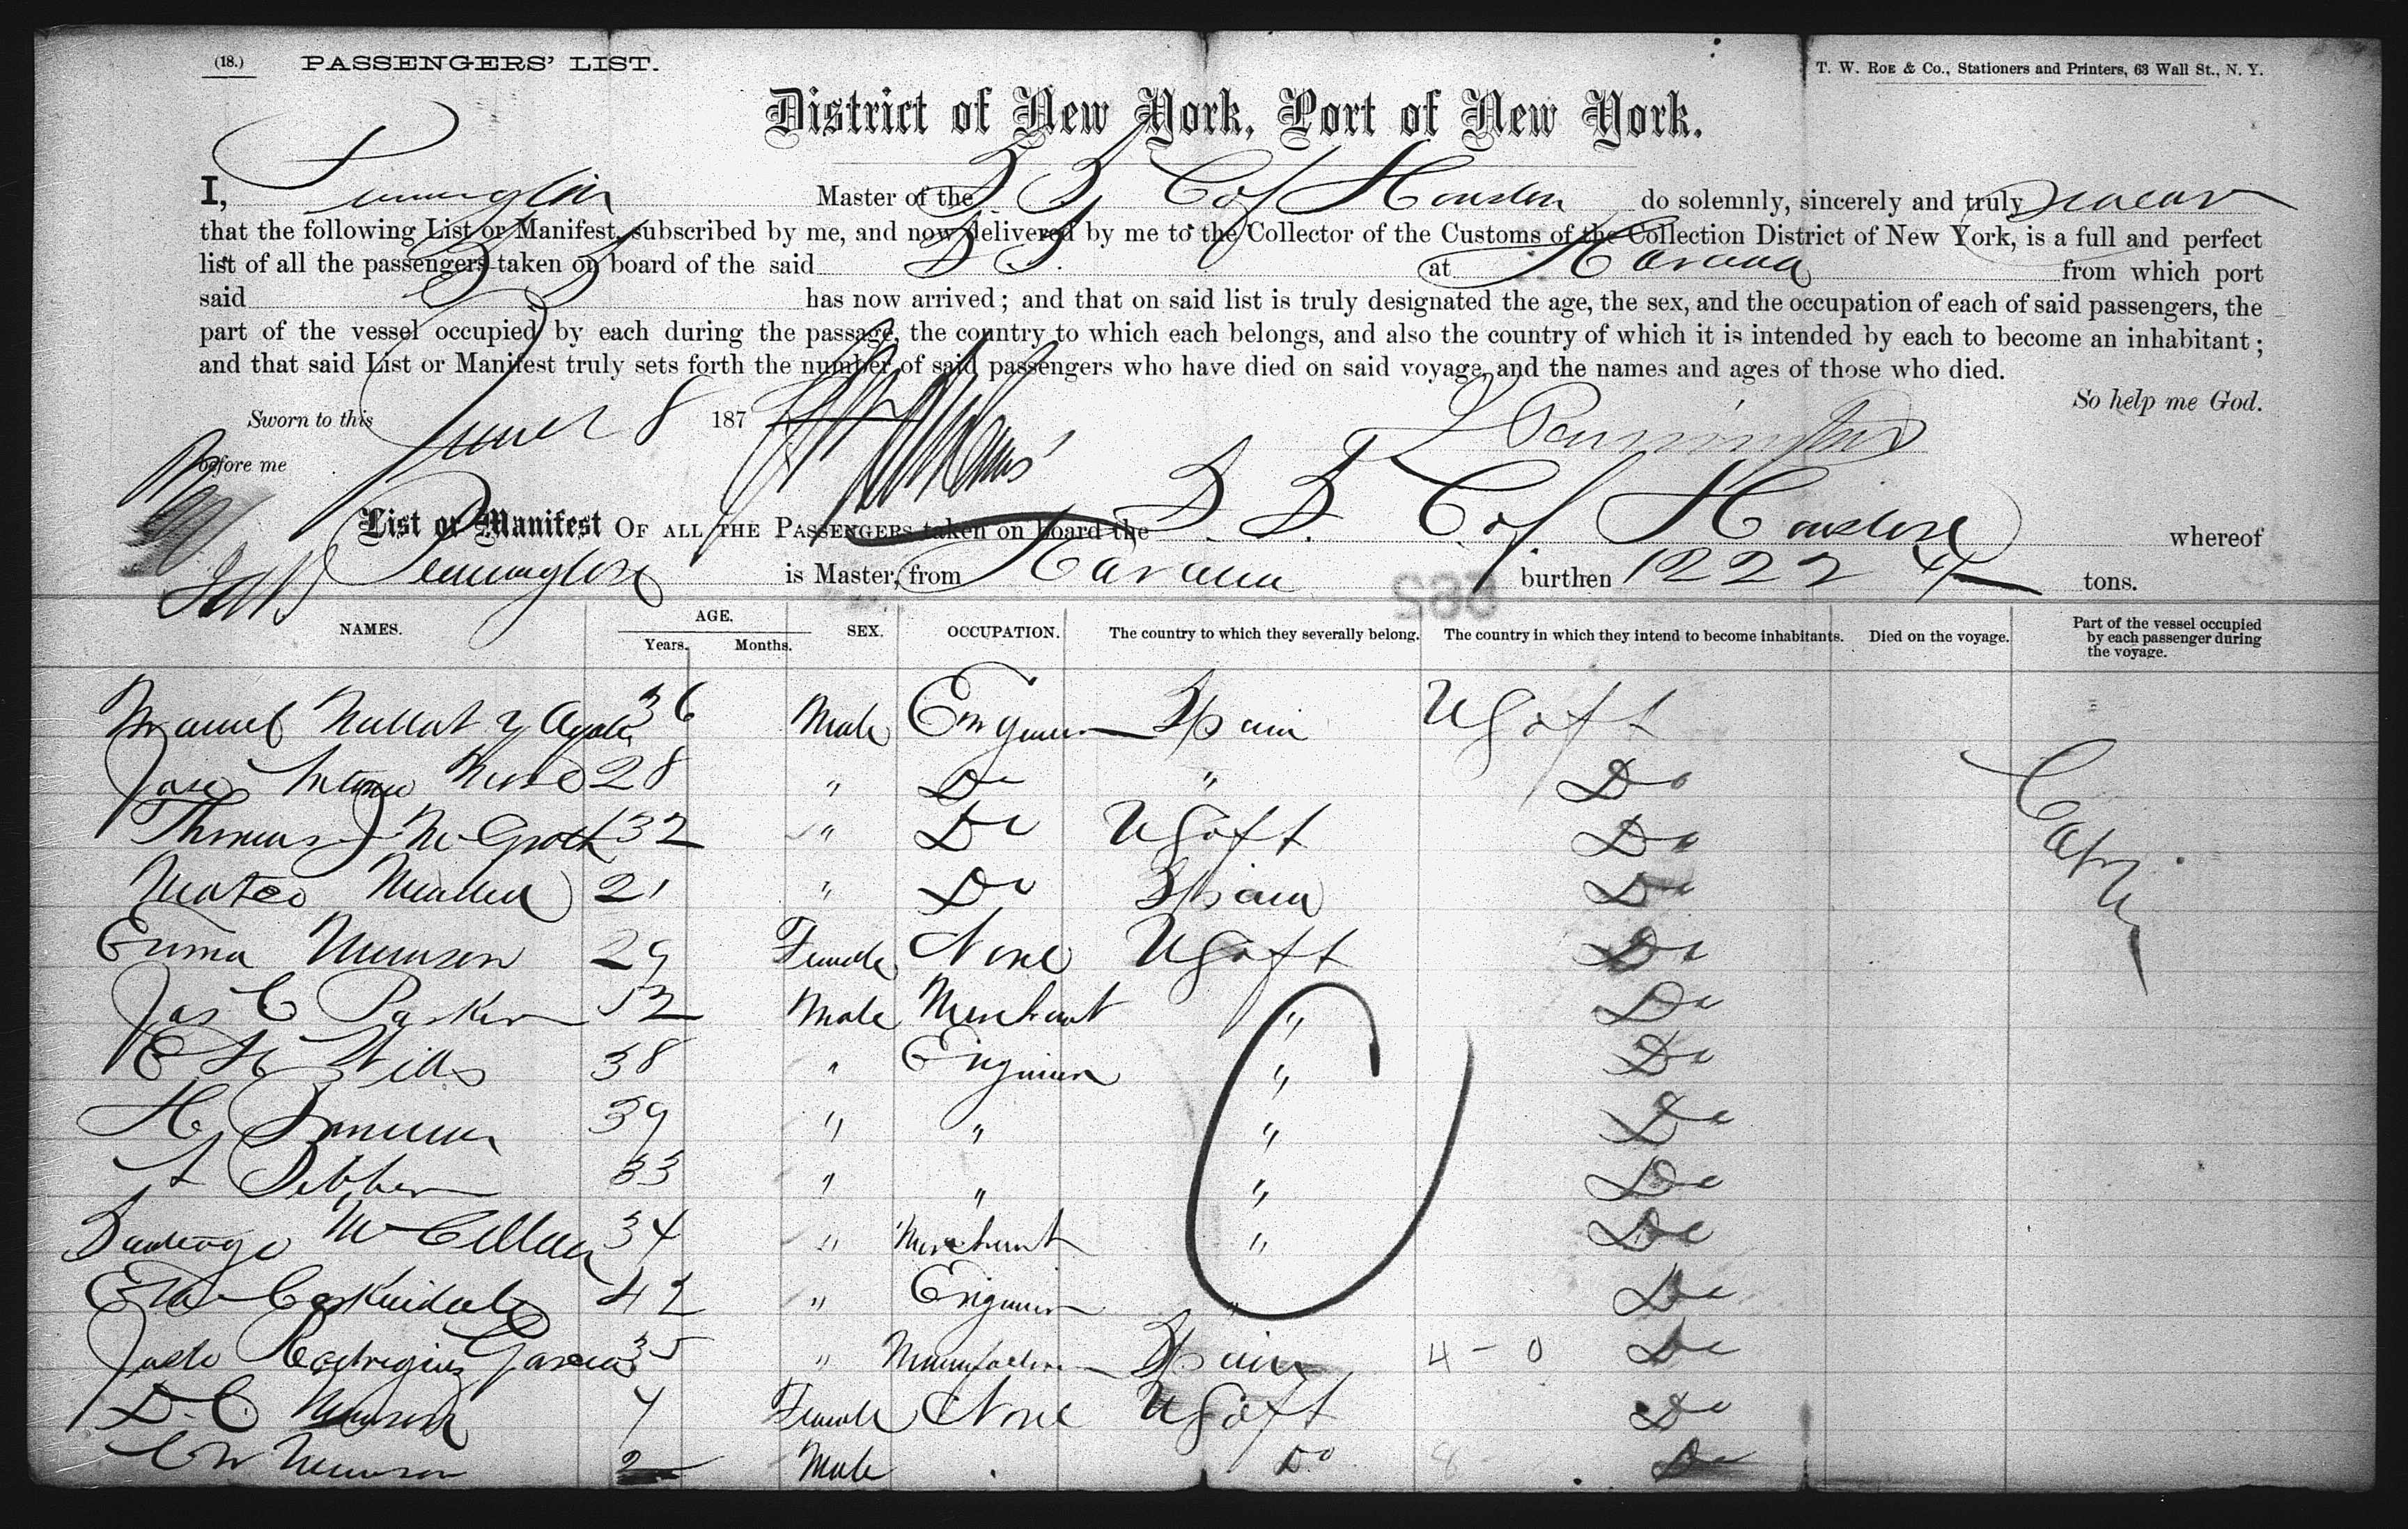 (18.) PASSENGERS' LIST. T. W. ROE & Co., Stationers and Printers, 63 Wall St., N. Y.
District of New York, Port of New York.
I, Pennington Master of the S S C of Houston do solemnly, sincerely and truly swear
that the following List or Manifest, subscribed by me, and now delivered by me to the Collector of the Customs of the Collection District of New York, is a full and perfect
list of all the passengers taken on board of the said S S. at Havana from which port
said S S has now arrived; and that on said list is truly designated the age, the sex, and the occupation of each of said passengers, the
part of the vessel occupied by each during the passage, the country to which each belongs, and also the country of which it is intended by each to become an inhabitant;
and that said List or Manifest truly sets forth the number of said passengers who have died on said voyage, and the names and ages of those who died.
So help me God.
Sworn to this June 8 187
Pennington
before me
List or Manifest OF ALL THE PASSENGERS taken on board the S. S. C. of Houston whereof
Pennington is Master, from Havana burthen 1222 tons.
NAMES. AGE. Years. Months. SEX. OCCUPATION. The country to which they severally belong. The country in which they intend to become inhabitants. Died on the voyage. Part of the vessel occupied by each passenger during the voyage.
Manuel y 36 Male Engineer Spain U S of A
Jose 28 " Do " Do
Thomas J McGrath 32 " Do U S of A Do
Mateo 21 " Do Spain Do
Emma Munson 29 Female None U S of A Do
Jas C Parker 52 Male Merchant " Do
38 " Engineer " Do
H 39 " " " Do
33 " " " Do
Santiago 34 " Merchant " Do
42 " Engineer " Do
Justo Rodriguez Garcia 35 " Manufacturer Spain 4 - 0 Do
D. C Munson 4 Female None U S of A Do
C W Munson 2 Male Do 8 Do
Cabin